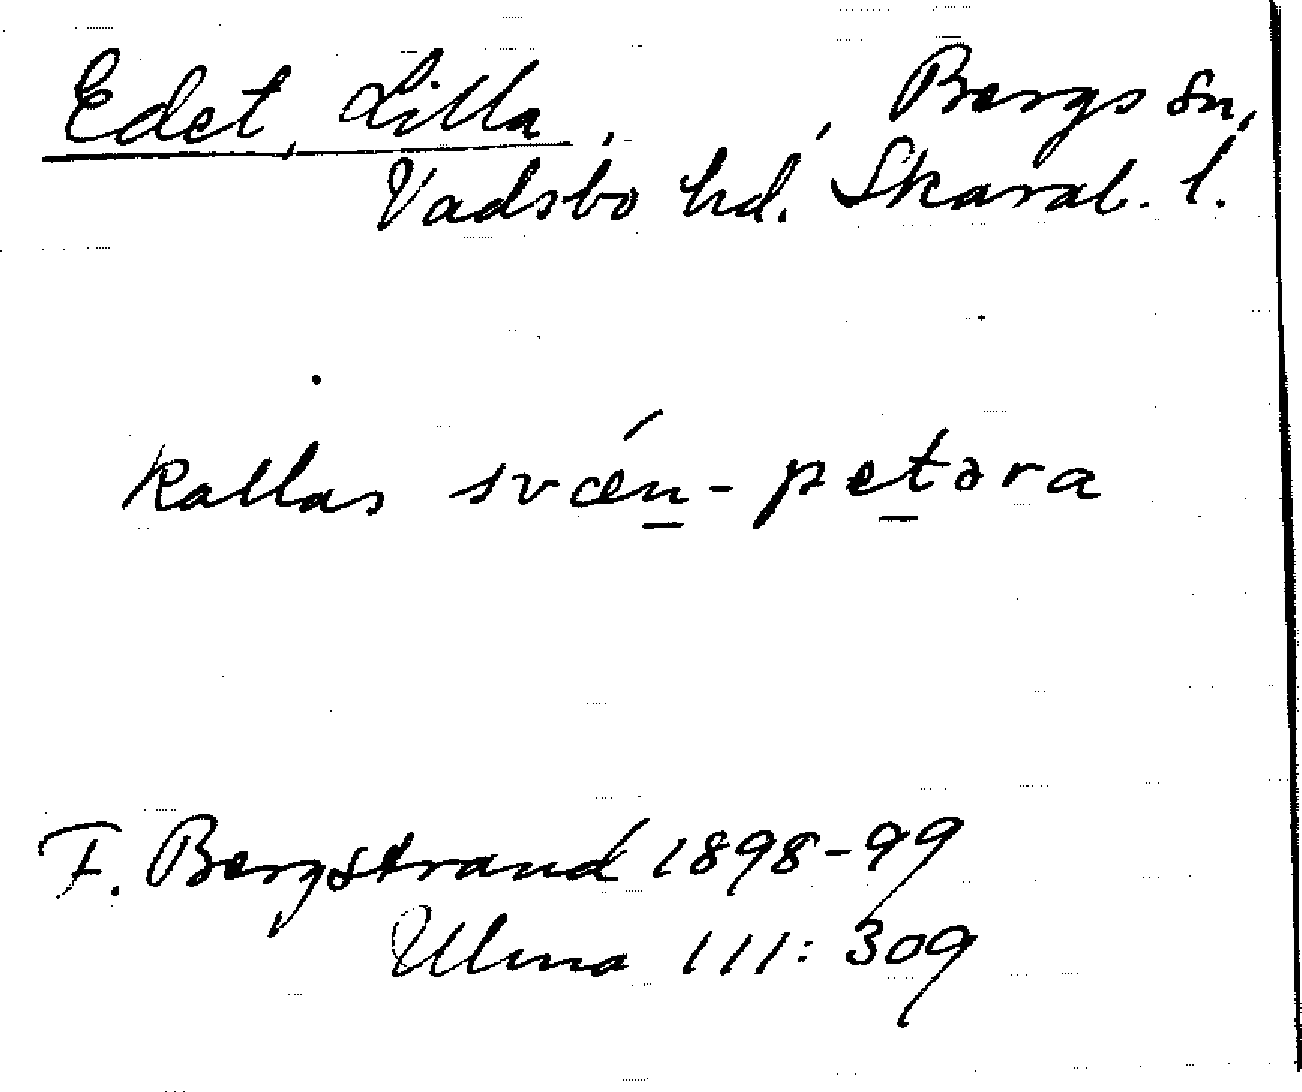 Edet, Lilla, Bergs sn,
Vadsbo hd. Skarab. l.
kallas svǽn̲-pet̲əra
F. Bergstrand 1898-99
Ulma 111: 309